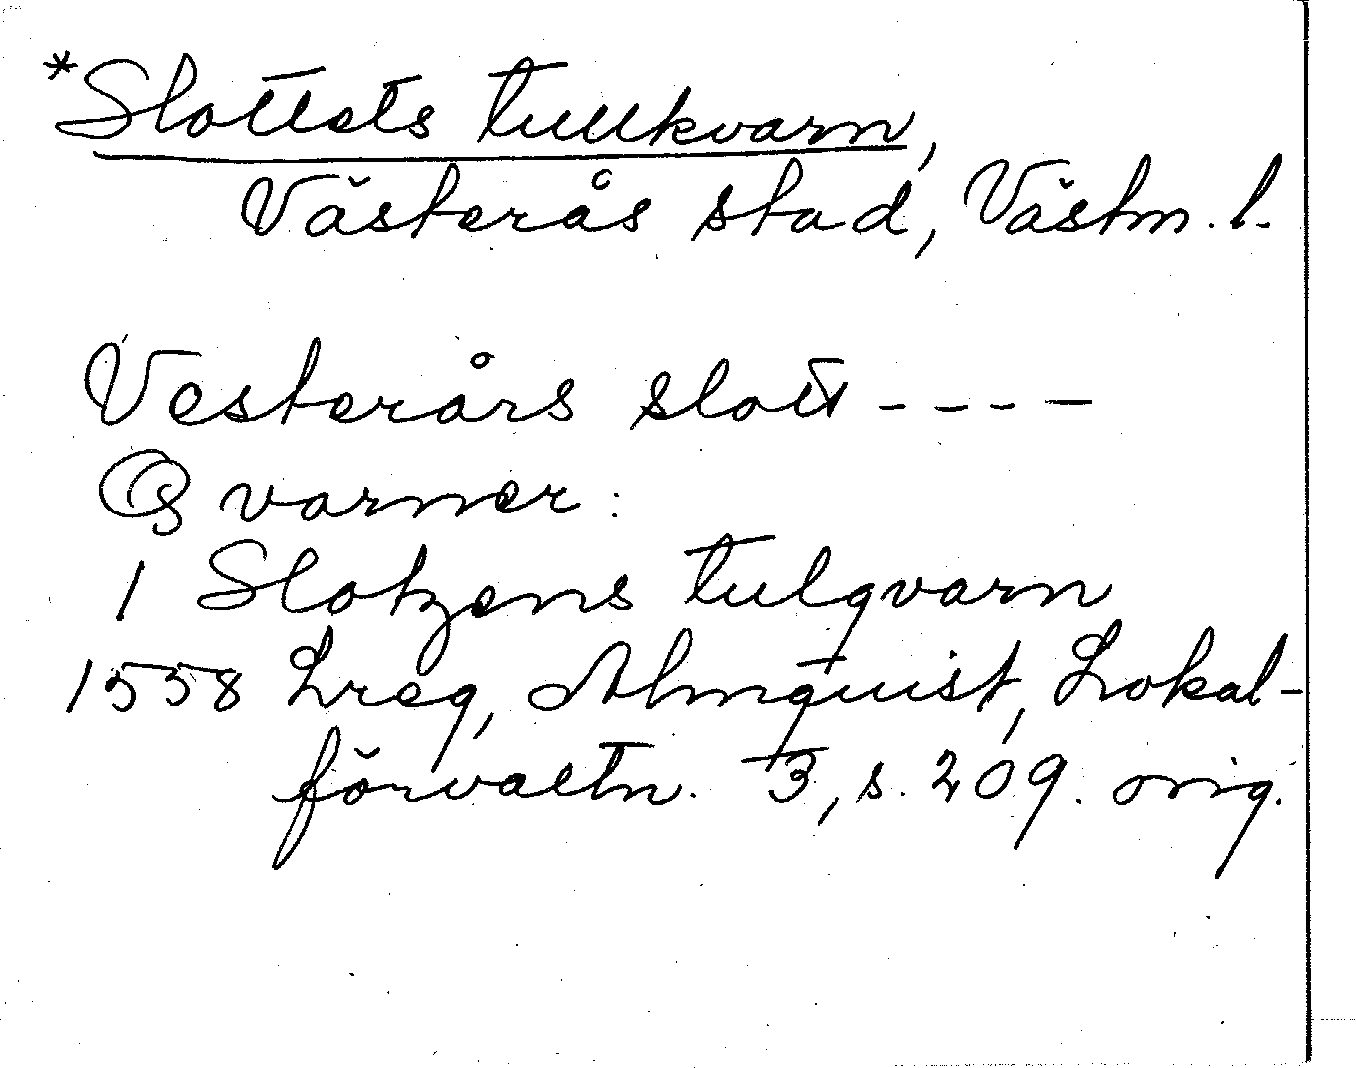 *Slottets tullkvarn,
Västerås stad, Västm. l.
Vesterårs slott - - - -
Qvarner:
1 Slotzens tulqvarn
1558 Lreg, Almquist, Lokal-
förvaltn. 3, s. 209. orig.